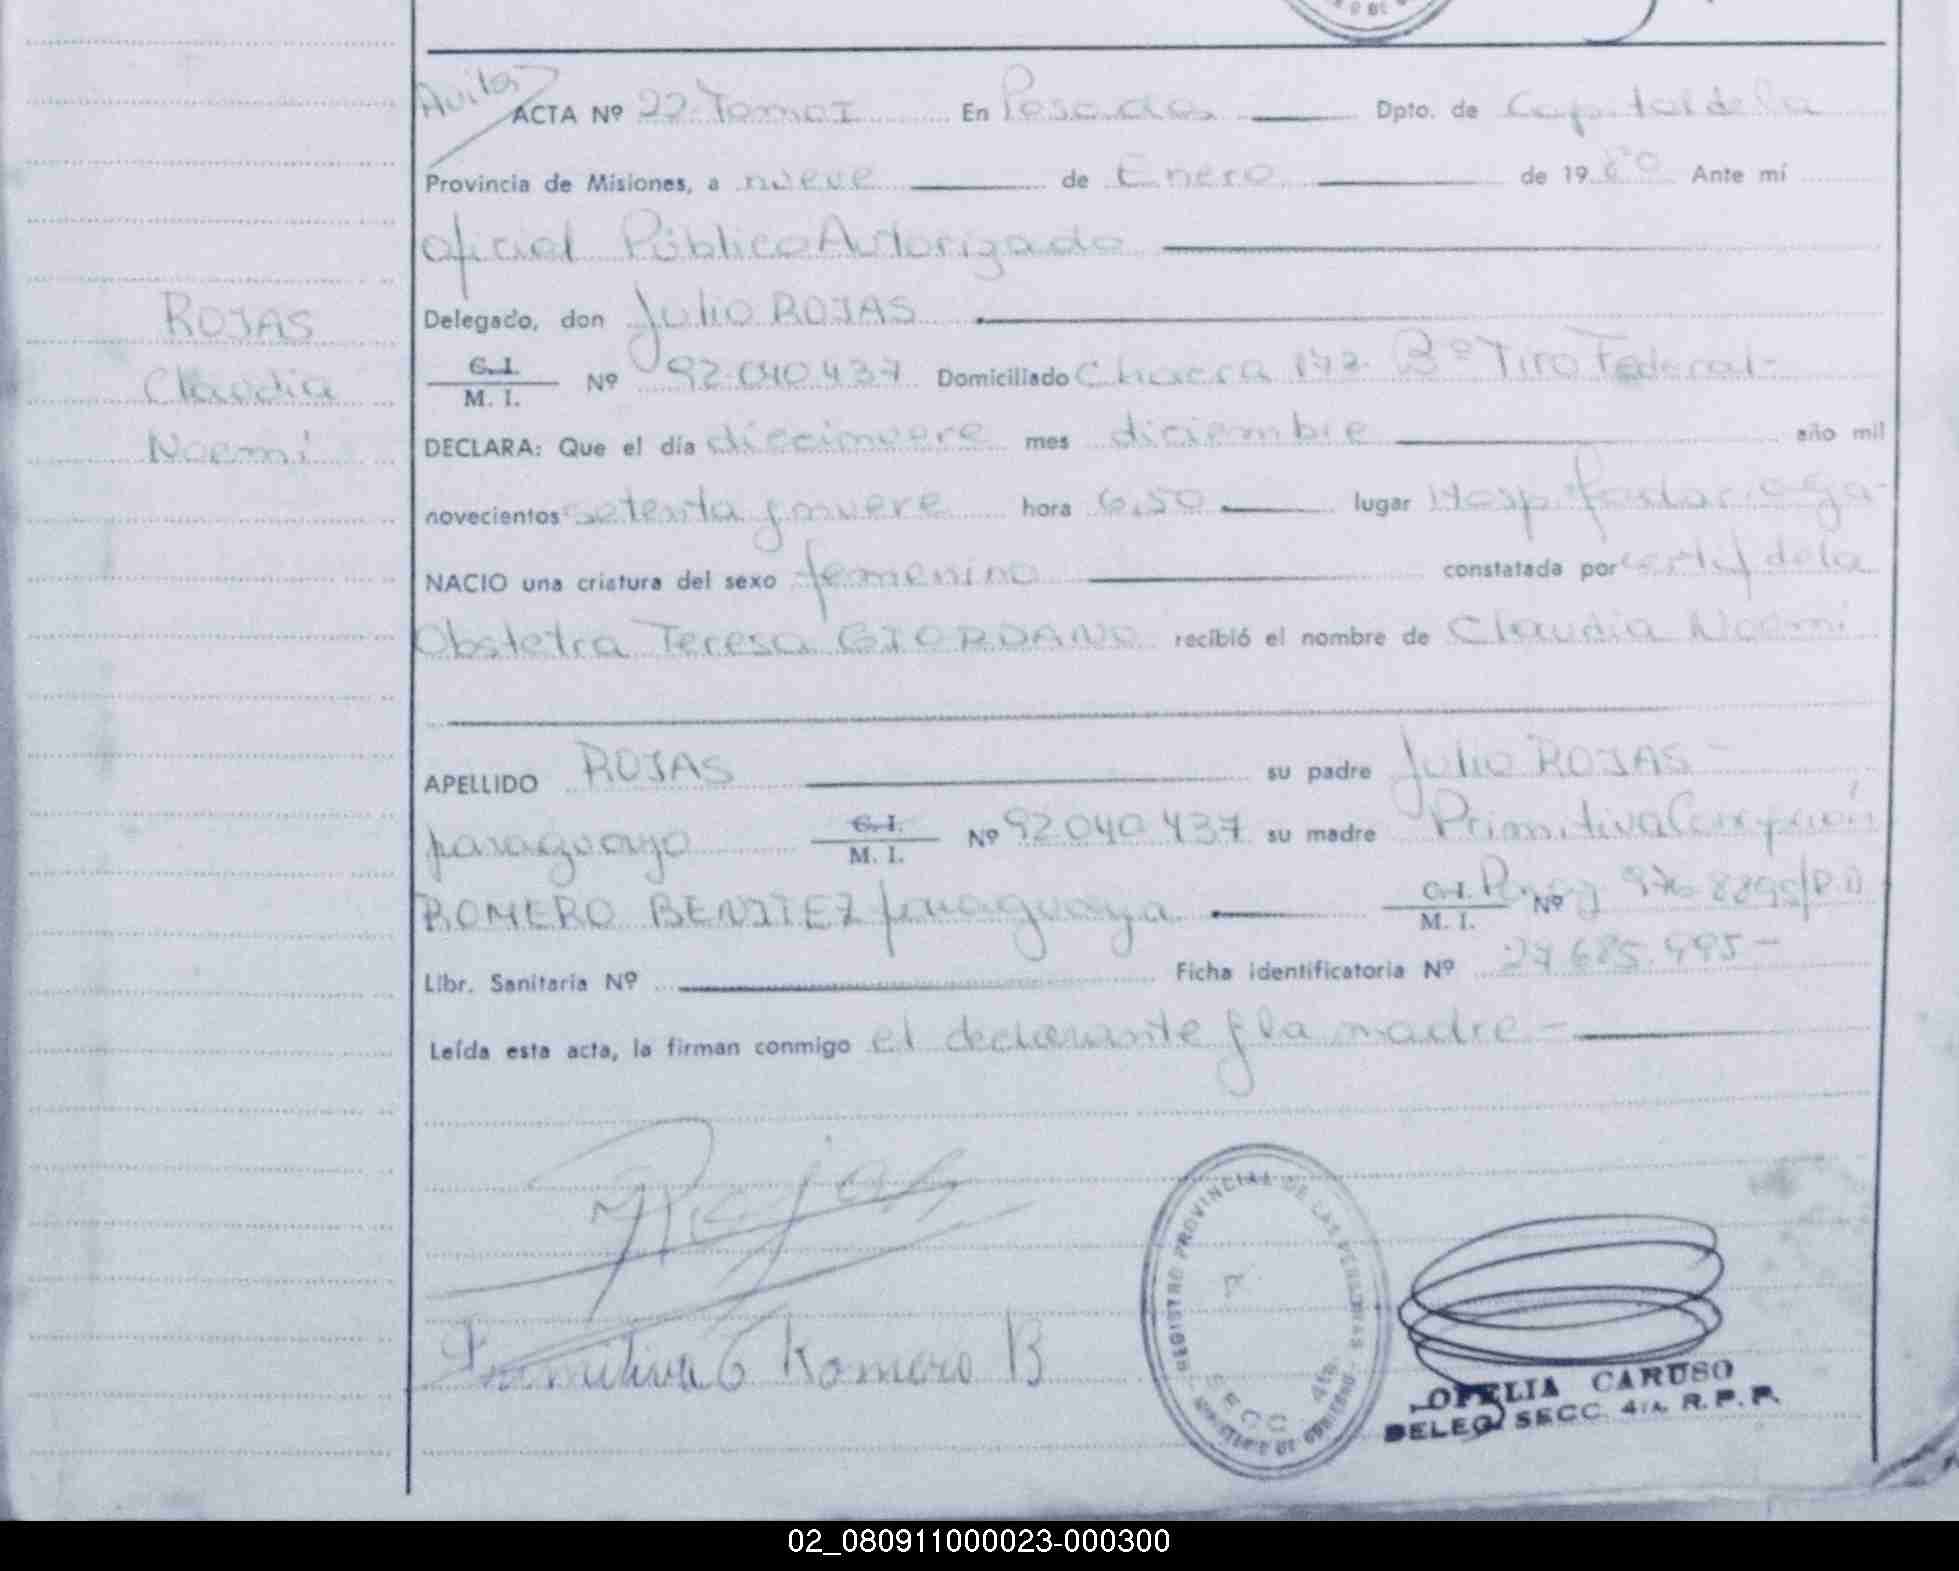 ROJAS
Claudia
Noemi
ACTA Nº 22 Tomo I En Posadas Dpto. de Capital de la
Provincia de Misiones, a nueve de Enero de 1980 Ante mí
Oficial Público Autorizado
Delegado, don Julio ROJAS
C. I. M. I. Nº 92.040.437 Domiciliado Chacra 142 Bº Tiro Federal-
DECLARA: Que el día diecinueve mes diciembre año mil
novecientos setenta y nueve hora 6,50 lugar Hosp.
NACIO una criatura del sexo femenino constatada por certif de la
Obstetra Teresa GIORDANO recibió el nombre de Claudia Noemi
APELLIDO ROJAS su padre Julio ROJAS -
paraguayo C. I. M. I. Nº 92.040.437 su madre Primitiva
ROMERO BENITEZ paraguaya C. I. M. I. Nº
Libr. Sanitaria Nº Ficha identificatoria Nº 27.685.995 -
Leída esta acta, la firman conmigo el declarante y la madre -
Rojas
Primitiva C Romero B
REGISTRO PROVINCIAL DE LAS PERSONAS
SECC. 4ta.
MINISTERIO DE GOBIERNO
OFELIA CARUSO
DELEG. SECC. 4TA. R. P. P.
02_080911000023-000300